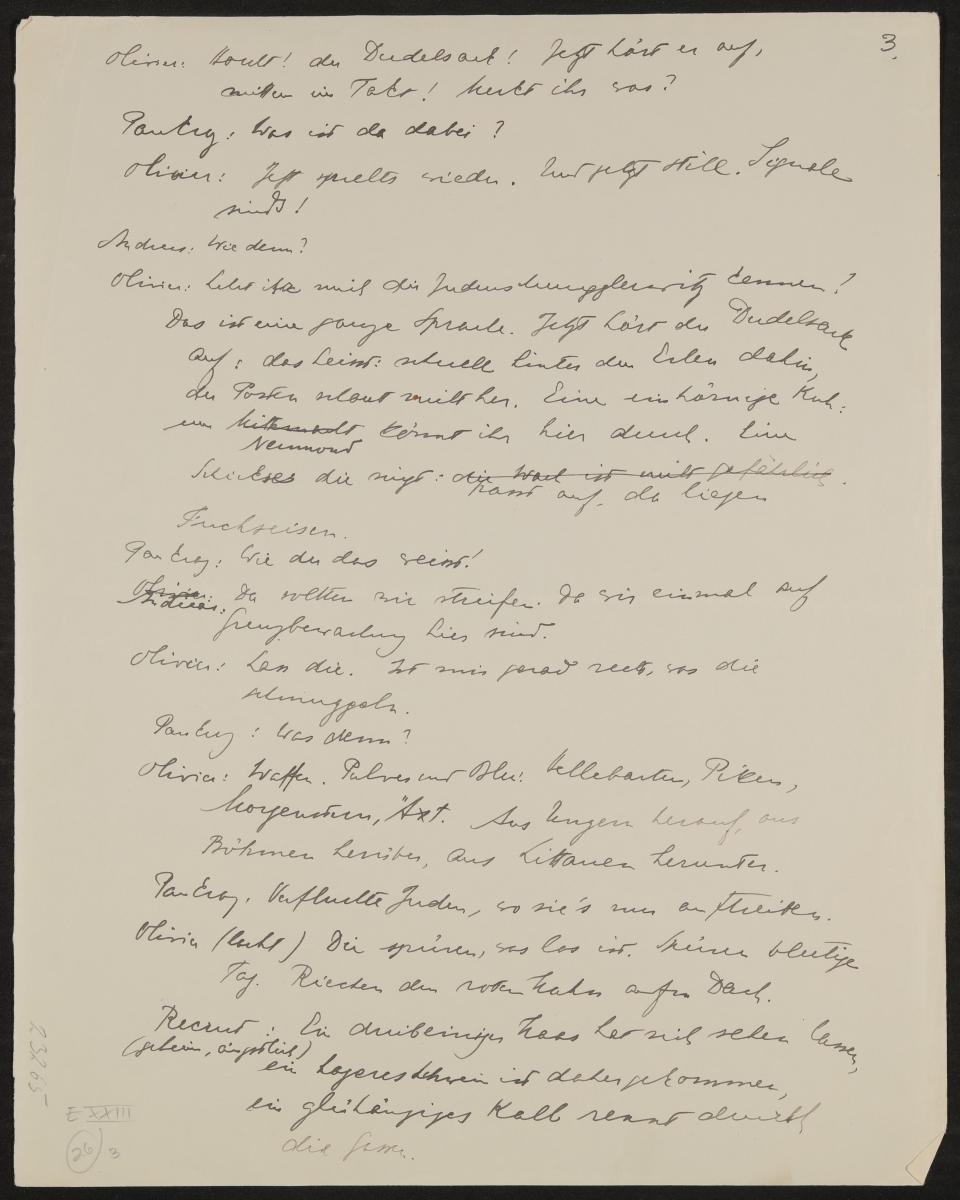 3.
Olivier: Horcht! der Dudelsack! Jetzt hört er auf,
mitten im Takt! Merkt ihr was?
Pankraz: Was ist da dabei?
Olivier: Jetzt spielts wieder. Und jetzt still. Signale
sinds!
Andreas: Wie denn?
Olivier: Lehrt ihr mich die Judenschmuggler kennen!
Das ist eine ganze Sprache. Jetzt hört der Dudelsack
auf: das heisst: schnell hinter den Erlen dahin,
der Posten schaut nicht her. Eine einhörnige Kuh:
um Mitternacht könnt ihr hier durch. Eine
Neumond
Schickse die singt: die Wach ist nicht gefährlich.
passt auf, da liegen
Fuchseisen.
Pankraz: Wie du das weisst!
Olivier:
Andreas: Da sollten wir streifen. Da wir einmal auf
Grenzbewachung hier sind.
Olivier: Lass die. Ist mir grad recht, was die
schmuggeln.
Pankraz: Was denn?
Olivier: Waffen. Pulver und Blei. Hellebarten, Piken,
Morgenstern, Axt. Aus Ungarn herauf, aus
Böhmen herüber, aus Littauen herunter.
Pankraz. Verfluchte Juden, wo sie's nur auftreiben.
Olivier (lacht) Die spüren, was los ist. Spüren blutige
Tag. Riechen den roten Hahn aufm Dach.
Recrut: Ein dreibeiniger Haas hat sich sehen lassen,
(geheim, ängstlich)
ein hageres Schwein ist dahergekommen,
ein glühäugiges Kalb rennt durch
die Gassen.
23265
E XXIII
26 3